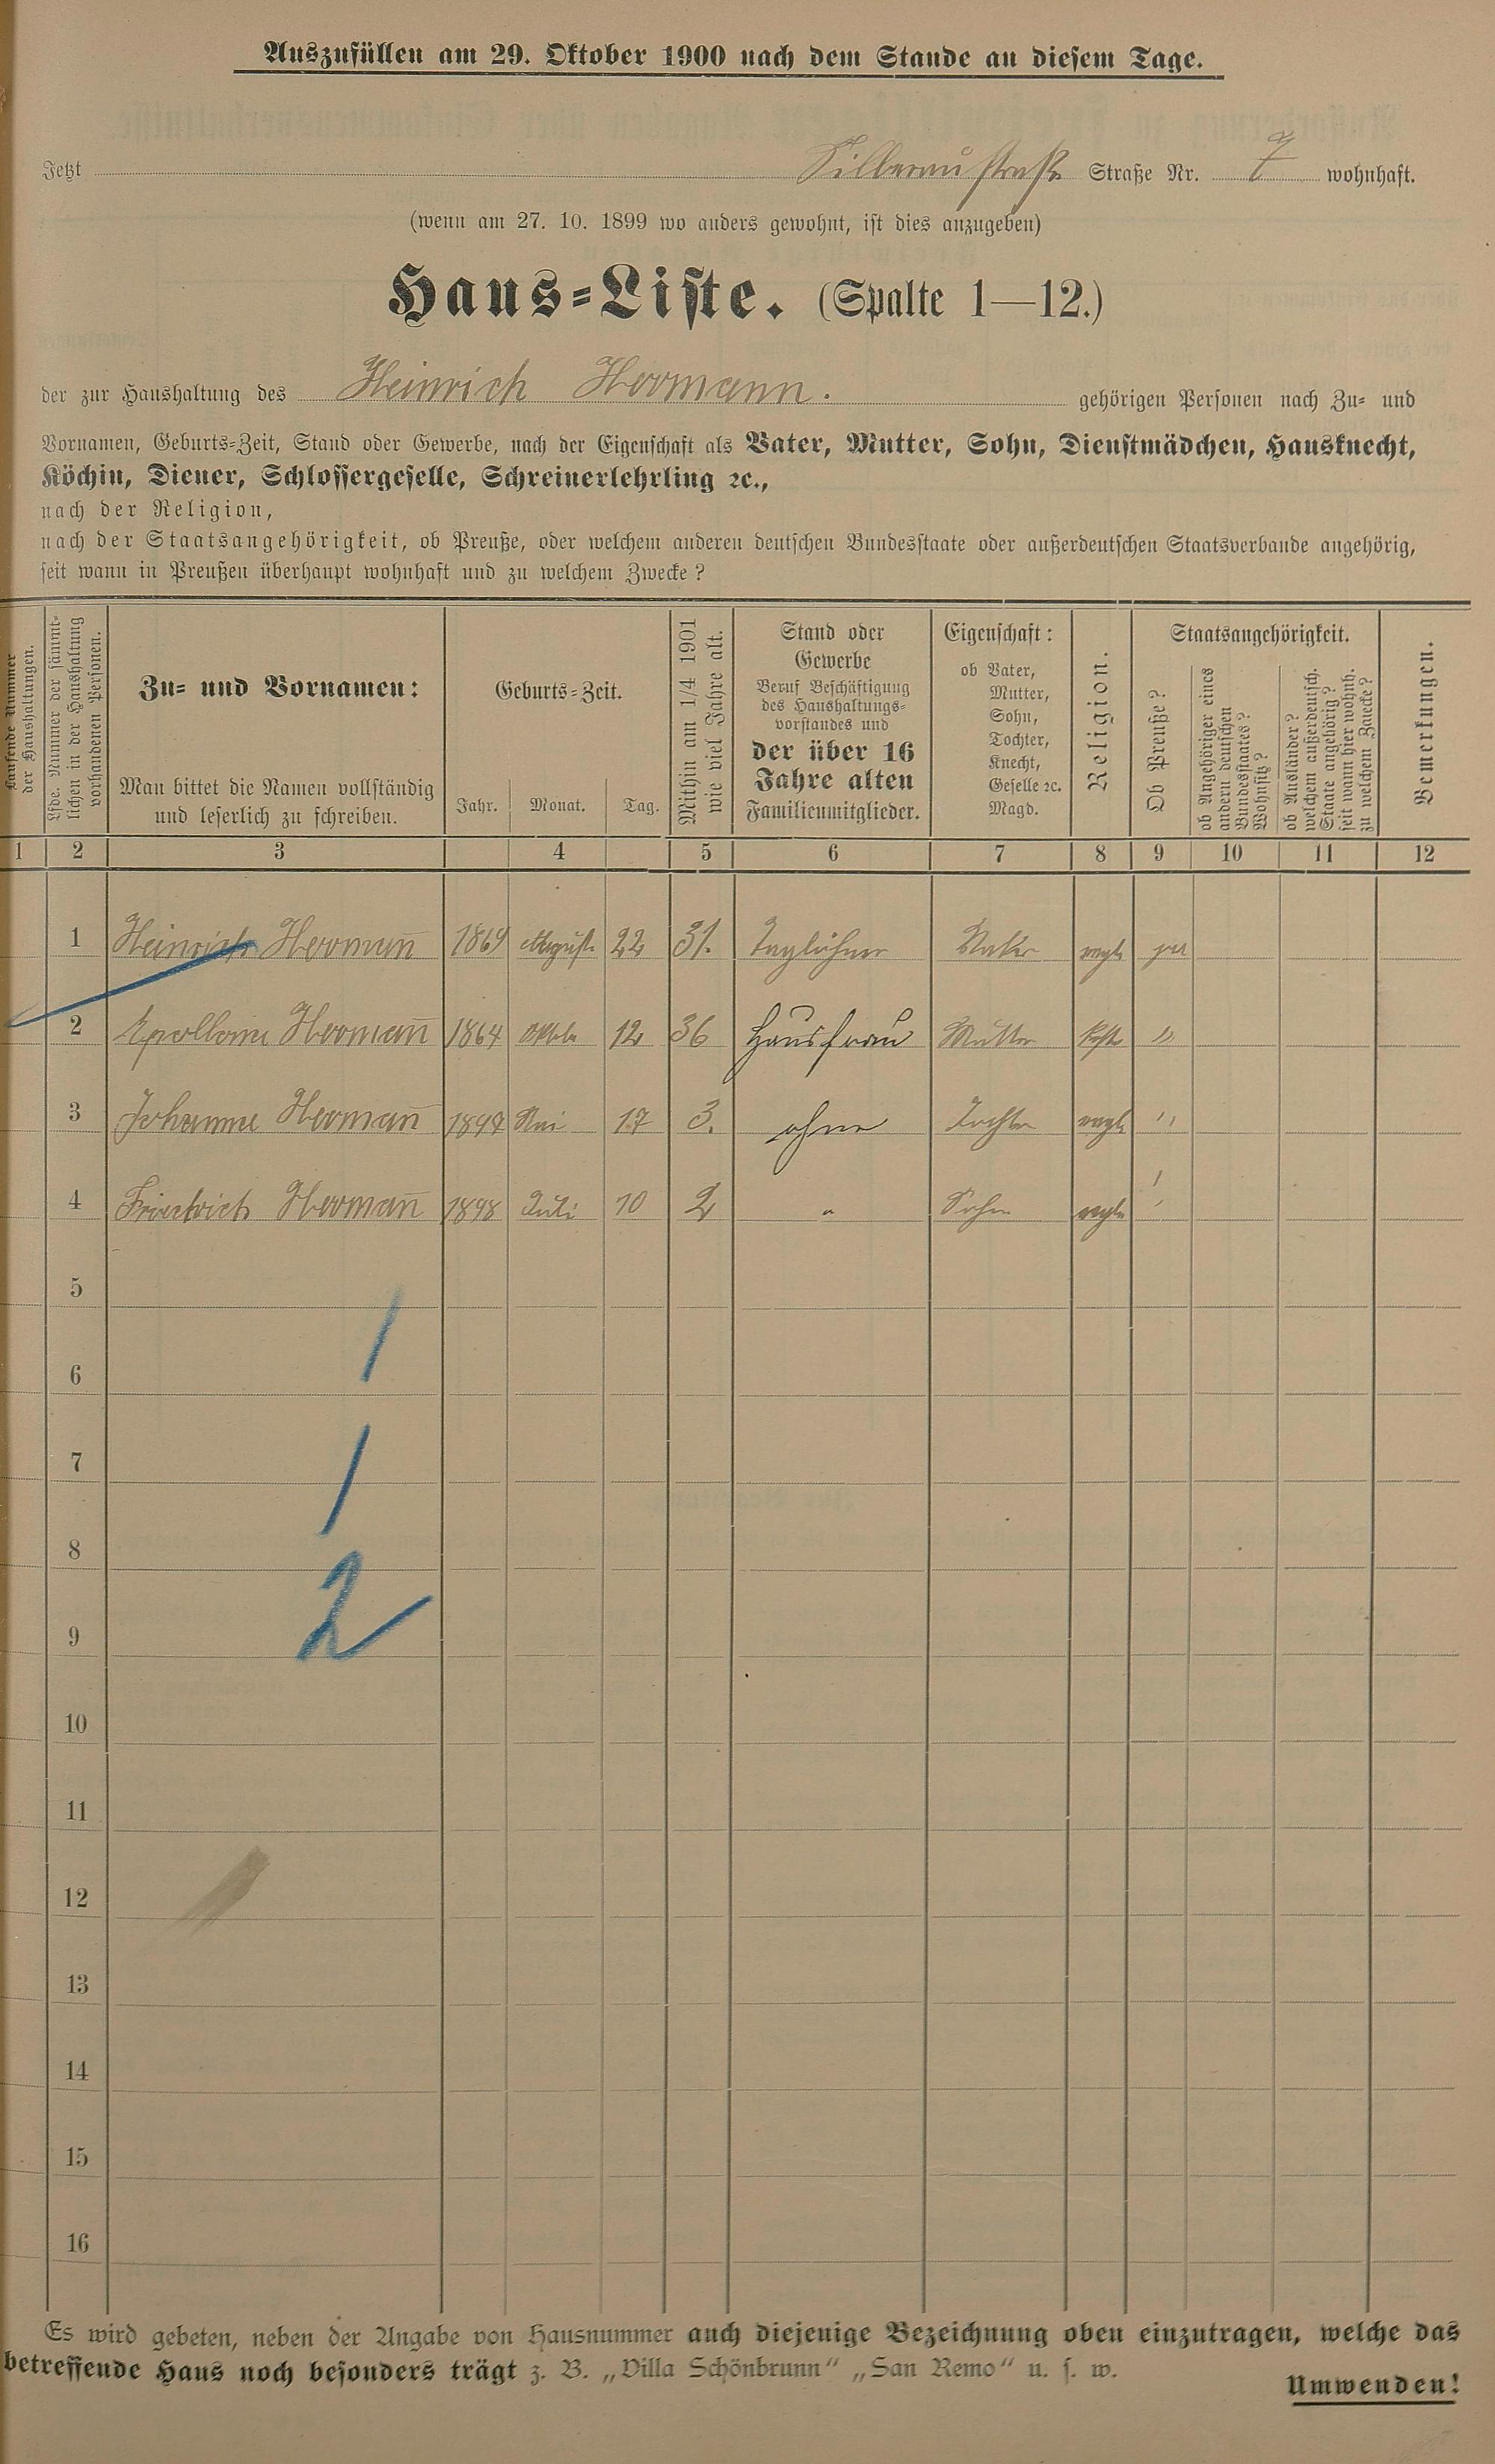 Auszufüllen am 29. Oktober 1900 nach dem Stande an diesem Tage.
Jetzt Silberaustraße Straße Nr. 7 wohnhaft.
(wenn am 27. 10. 1899 wo anders gewohnt, ist dies anzugeben)
Haus-Liste. (Spalte 1—12.)
der zur Haushaltung des Heinrich Hermann. gehörigen Personen nach Zu- und
Vornamen, Geburts-Zeit, Stand oder Gewerbe, nach der Eigenschaft als Vater, Mutter, Sohn, Dienstmädchen, Hausknecht,
Köchin, Diener, Schlossergeselle, Schreinerlehrling ꝛc.,
nach der Religion,
nach der Staatsangehörigkeit, ob Preuße, oder welchem anderen deutschen Bundesstaate oder außerdeutschen Staatsverbande angehörig,
seit wann in Preußen überhaupt wohnhaft und zu welchem Zwecke?
Laufende Nummer
der Haushaltungen.
Lfde. Nummer der sämmt-
lichen in der Haushaltung
vorhandenen Personen.
Zu- und Vornamen:
Man bittet die Namen vollständig
und leserlich zu schreiben.
Geburts-Zeit.
Jahr. Monat. Tag.
Mithin am 1/4 1901
wie viel Jahre alt.
Stand oder
Gewerbe
Beruf Beschäftigung
des Haushaltungs-
vorstandes und
der über 16
Jahre alten
Familienmitglieder.
Eigenschaft:
ob Vater,
Mutter,
Sohn,
Tochter,
Knecht,
Geselle ꝛc.
Magd.
Religion.
Staatsangehörigkeit.
Ob Preuße?
ob Angehöriger eines
andern deutschen
Bundesstaates?
Wohnsitz?
ob Ausländer?
welchem außerdeutsch.
Staate angehörig?
seit wann hier wohnh.
zu welchem Zwecke?
Bemerkungen.
1 2 3 4 5 6 7 8 9 10 11 12
1 Heinrich Hermañ 1869 August 22 31. Taglöhner Vater evgl. ja
2 Hermañ 1864 12 36 Hausfrau Mutter Kath "
3 Johanne Hermañ Mai 17 3. ohne Tochter evgl. "
4 Friedrich Hermañ 1898 Juli 10 2 " Sohn evgl. "
5
6
7
8
2
9
10
11
12
13
14
15
16
Es wird gebeten, neben der Angabe von Hausnummer auch diejenige Bezeichnung oben einzutragen, welche das
betreffende Haus noch besonders trägt z. B. „Villa Schönbrunn“ „San Remo“ u. s. w.
Umwenden!